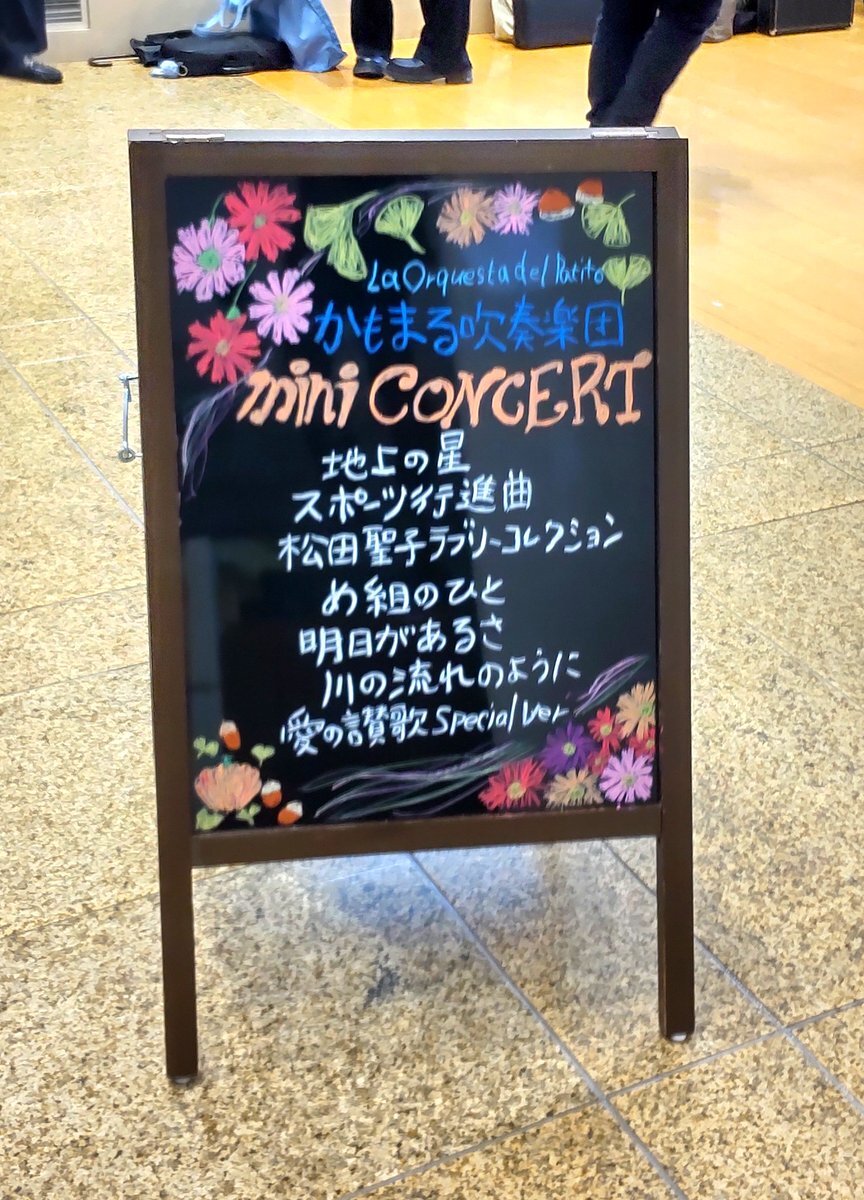 La Orquesta del Patito
かもまる吹奏楽団
mini CONCERT
地上の星
スポーツ行進曲
松田聖子ラブリーコレクション
め組のひと
明日があるさ
川の流れのように
愛の讃歌 Special Ver